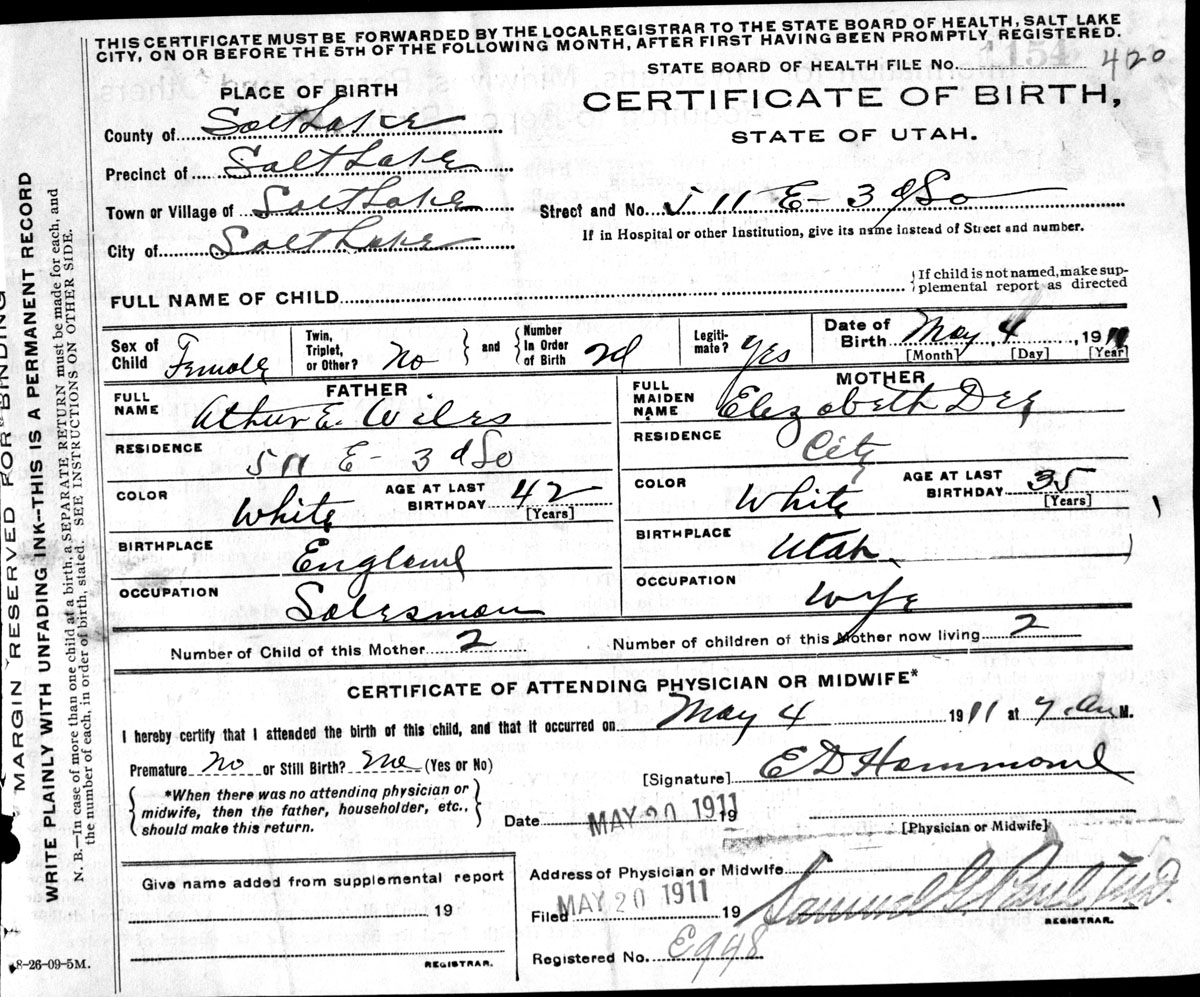 THIS CERTIFICATE MUST BE FORWARDED BY THE LOCALREGISTRAR TO THE STATE BOARD OF HEALTH, SALT LAKE
CITY, ON OR BEFORE THE 5TH OF THE FOLLOWING MONTH, AFTER FIRST HAVING BEEN PROMPTLY REGISTERED.
STATE BOARD OF HEALTH FILE No. 420
PLACE OF BIRTH
CERTIFICATE OF BIRTH,
STATE OF UTAH.
County of Salt Lake
Precinct of Salt Lake
Town or Village of Salt Lake
Street and No. 511 E- 3d So
If in Hospital or other Institution, give its name instead of Street and number.
City of Salt Lake
FULL NAME OF CHILD
If child is not named, make sup-
plemental report as directed
Sex of Child Female
Twin, Triplet, or Other? No
and
Number In Order of Birth 2d
Legiti-mate? Yes
Date of Birth May 4, 1911
[Month] [Day] [Year]
FATHER
MOTHER
FULL NAME Athur E. Wiles
FULL MAIDEN NAME Elezabeth Dee
RESIDENCE 511 E- 3d So
RESIDENCE City
COLOR White
AGE AT LAST BIRTHDAY 42 [Years]
COLOR White
AGE AT LAST BIRTHDAY 35 [Years]
BIRTHPLACE England
BIRTHPLACE Utah
OCCUPATION Salesman
OCCUPATION Wife
Number of Child of this Mother 2
Number of children of this Mother now living 2
CERTIFICATE OF ATTENDING PHYSICIAN OR MIDWIFE*
I hereby certify that I attended the birth of this child, and that it occurred on May 4 1911 at 7. am M.
Premature No or Still Birth? No (Yes or No)
[Signature] E D Hammond
*When there was no attending physician or
midwife, then the father, householder, etc.,
should make this return.
Date MAY 20 1911 19
[Physician or Midwife]
Give name added from supplemental report
19
REGISTRAR.
Address of Physician or Midwife
Filed MAY 20 1911 19 Samuel G. Paul M.D.
REGISTRAR.
Registered No. E948
8-26-09-5M.
MARGIN RESERVED FOR BINDING
WRITE PLAINLY WITH UNFADING INK--THIS IS A PERMANENT RECORD
N. B.--In case of more than one child at a birth, a SEPARATE RETURN must be made for each, and
the number of each, in order of birth, stated. SEE INSTRUCTIONS ON OTHER SIDE.